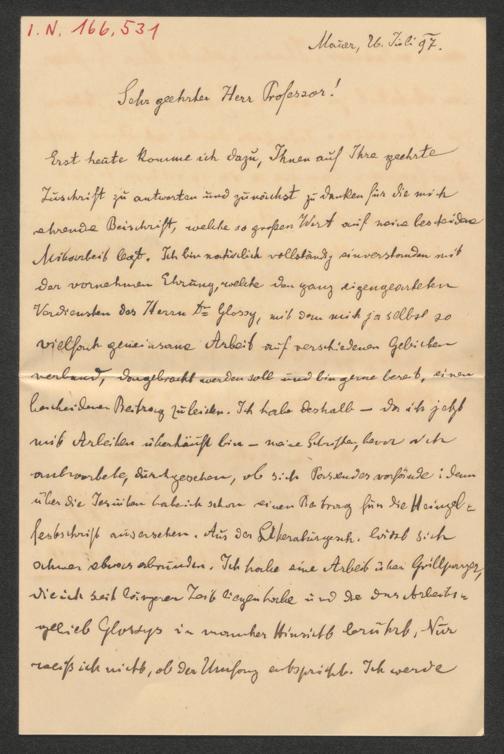 I. N. 166,531
Mauer, 26. Juli 97.
Sehr geehrter Herr Professor!
Erst heute komme ich dazu, Ihnen auf Ihre geehrte
Zuschrift zu antworten und zunächst zu danken für die mich
ehrende Beischrift, welche so großen Wert auf meine bescheidene
Mitarbeit legt. Ich bin natürlich vollständig einverstanden mit
der vornehmen Ehrung, welche den ganz eigengearteten
Verdiensten des Herrn Dr Glossy, mit dem mich ja selbst so
vielfach gemeinsame Arbeit auf verschiedenen Gebieten
verband, dargebracht werden soll und bin gerne bereit, einen
bescheidenen Beitrag zu leisten. Ich habe deshalb – da ich jetzt
mit Arbeiten überhäuft bin – meine Schriften, bevor ich
antwortete, durchgesehen, ob sich Passendes vorfände: denn
über die Jesuiten habe ich schon einen Beitrag für die Heinzel=
festschrift ausersehen. Aus der läßt sich
schwer etwas abrunden. Ich habe eine Arbeit über Grillparzer,
die ich seit längerer Zeit liegen habe und die das Arbeits=
gebiet Glossys in mancher Hinsicht berührt, Nur
weiß ich nicht, ob der Umfang entspricht. Ich werde